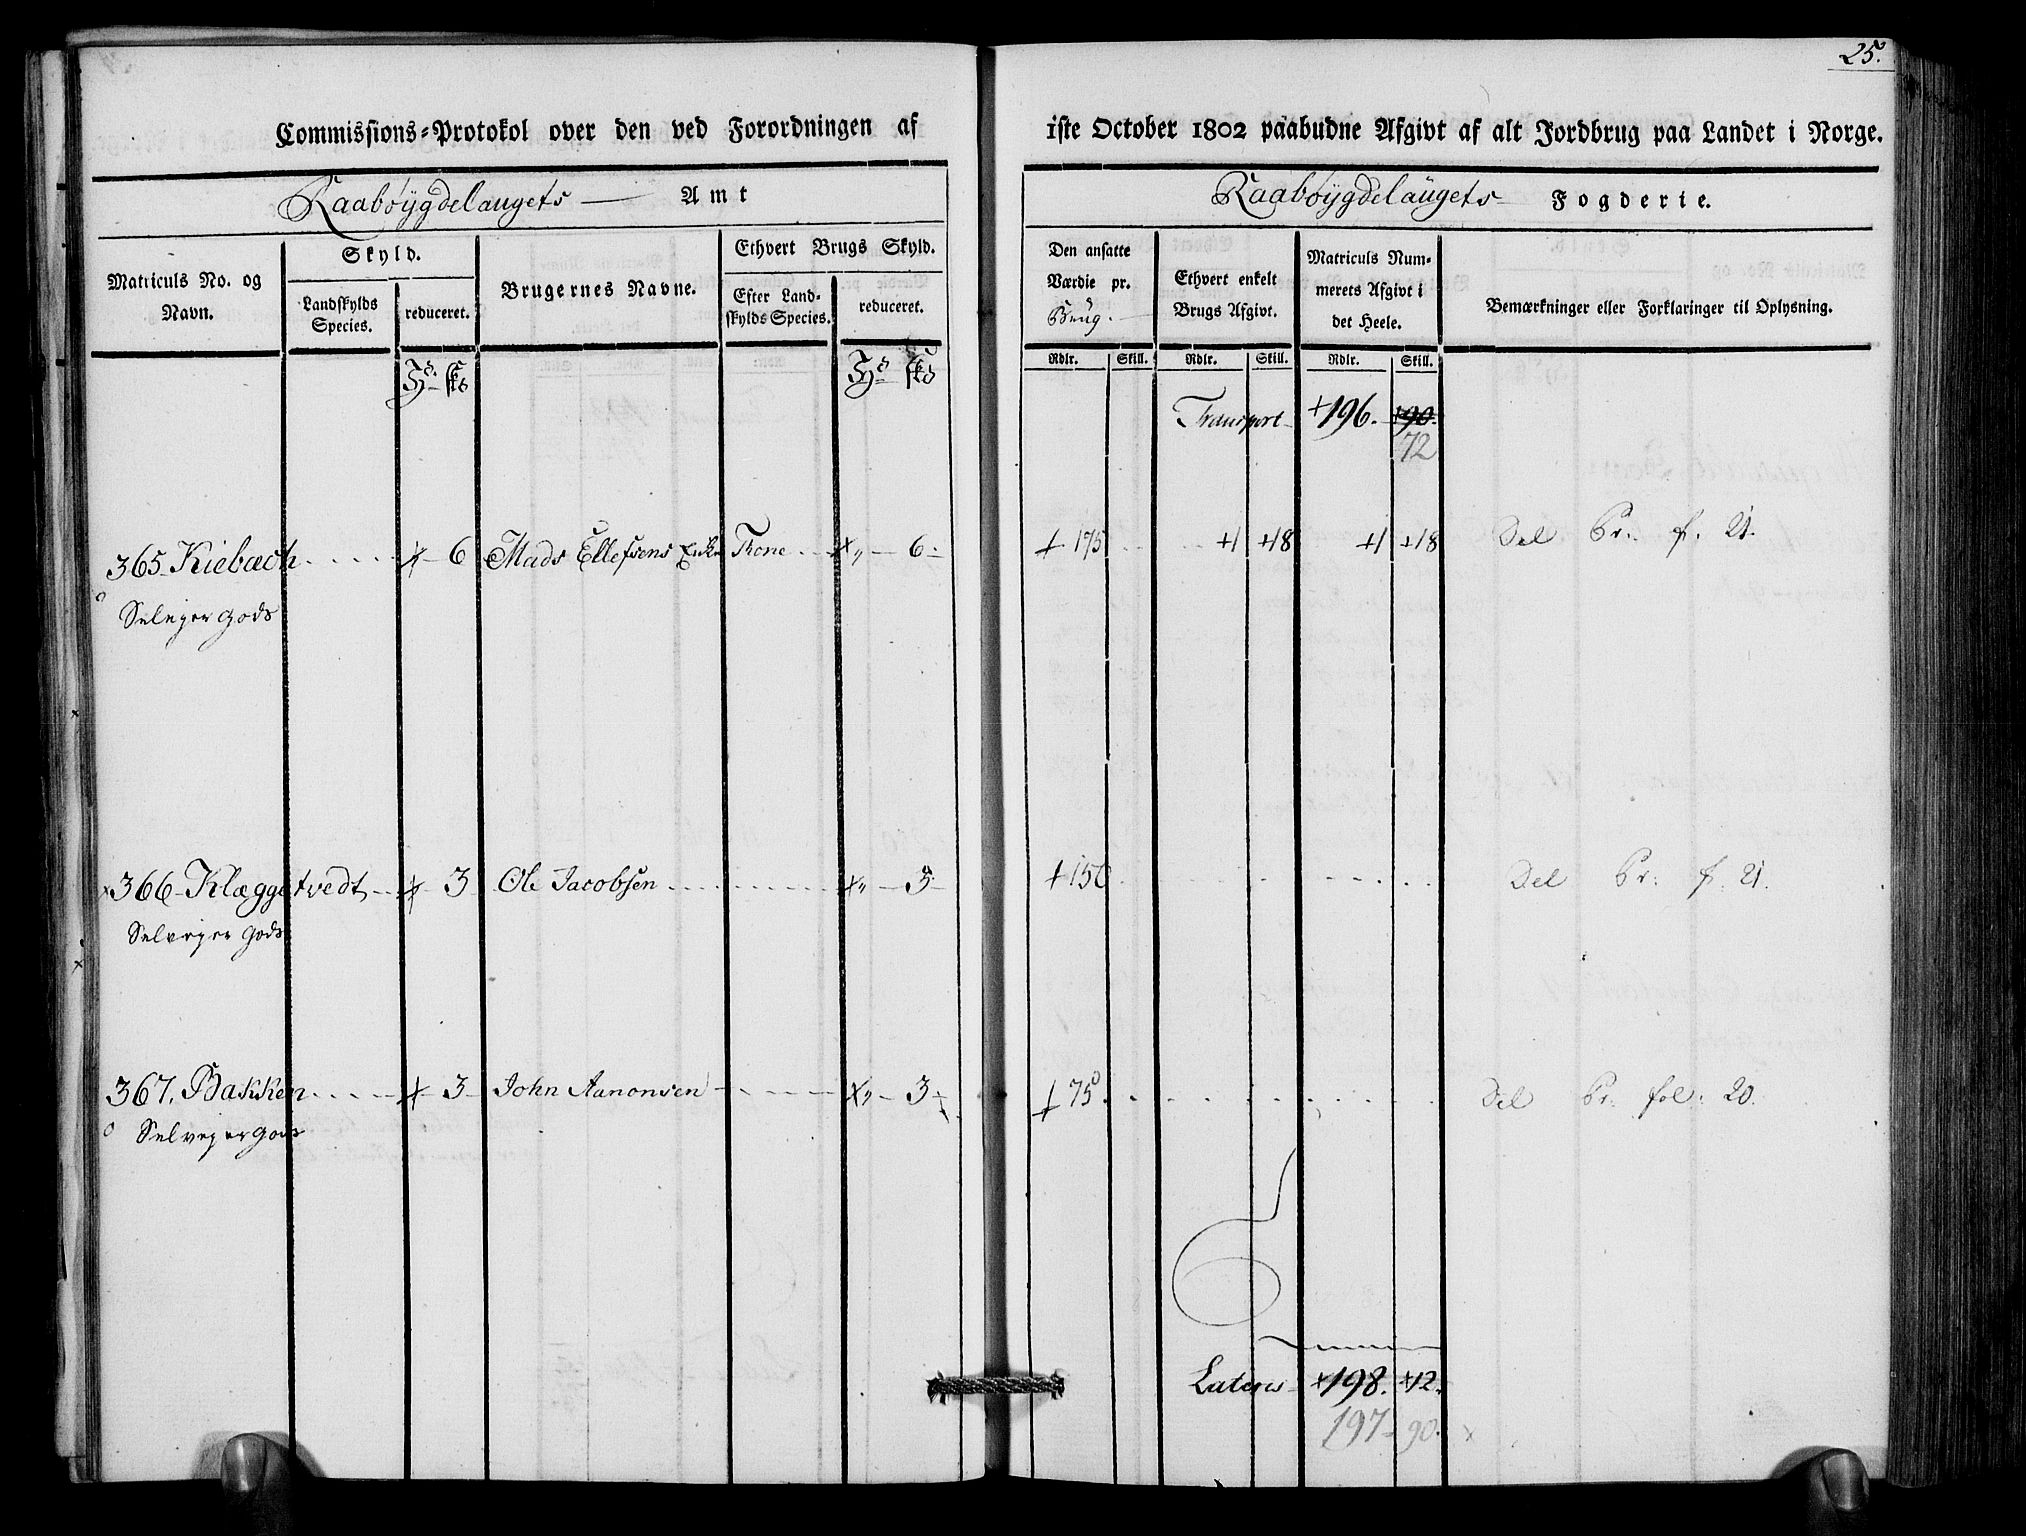 25.
Commissions-Protokol over den ved Forordningen af 1ste October 1802 paabudne Afgivt af alt Jordbrug paa Landet i Norge.
Raabøygdelaugets Amt
Raabøygdelaugets Fogderie.
Matriculs No. og Navn.
Skyld.
Landskylds Species.
reduceret.
Brugernes Navne.
Ethvert Brugs Skyld.
Efter Landskylds Species.
reduceret.
Den ansatte Værdie pr. Brug.
Ethvert enkelt Brugs Afgivt.
Matriculs Nummerets Afgivt i det Heele.
Bemærkninger eller Forklaringer til Oplysning.
Rdlr. Skill. Rdlr. Skill. Rdlr. Skill.
Transport +196. +90.
72
365 Kiebæch 6 Mads Ellefsens Enke Trone 6 + 175 +1 +18 +1 +18 Del Pr. f. 21.
Selvejer Gods
366 Klæggetvedt 3 Ole Jacobsen 3 +150 Del Pr. f. 21.
Selvejer Gods
367. Bakken 3 John Aanonsen 3 + 75 Del Pr. fol. 20.
Selvejer Gods
Lateris +198. +12.
197 - 90.